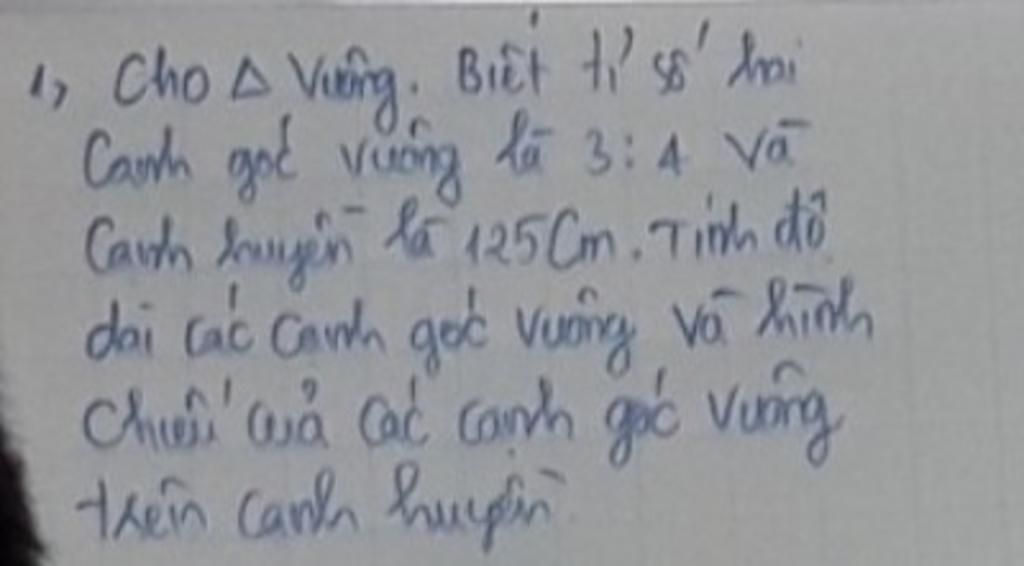 1, Cho Δ vuông. Biết tỉ số hai
Cạnh góc vuông là 3:4 và
Cạnh huyền là 125Cm. Tính độ
dài các cạnh góc vuông và hình
chiếu của các cạnh góc vuông
trên cạnh huyền.